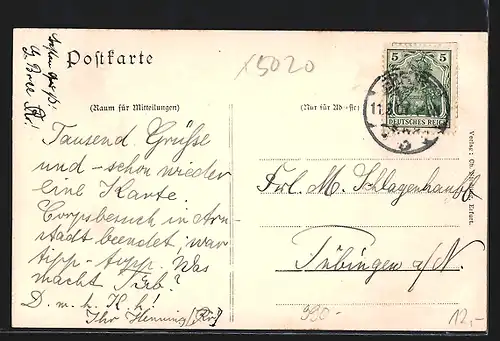 Besten Gruß!
Postkarte
x5020
(Raum für Mitteilungen)
(Nur für Adresse)
5 5
DEUTSCHES REICH
Tausend Grüße
und – schon wieder
eine Karte.
Corpsbesuch in Arn-
stadt beendet, war
tipp-topp. Was
macht Tüb?
D. m. h. K. h!
Ihr Henning
Frl. M. Schlagenhauff
Tübingen a/N.
990-
12,-
Verlag: Erfurt.